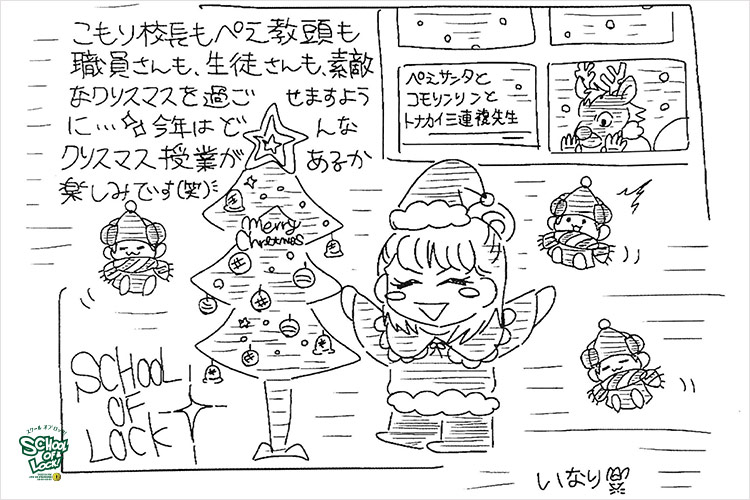 こもり校長もぺえ教頭も
職員さんも、生徒さんも、素敵
なクリスマスを過ごせますよう
に…☆今年はどんな
クリスマス授業があるか
楽しみです(笑)
ぺえサンタと
コモリンリンと
トナカイ三連複先生
Merry
Christmas
SCHOOL
OF
LOCK
スクール オブ ロック!
SCHOOL
OF
LOCK!
いなり